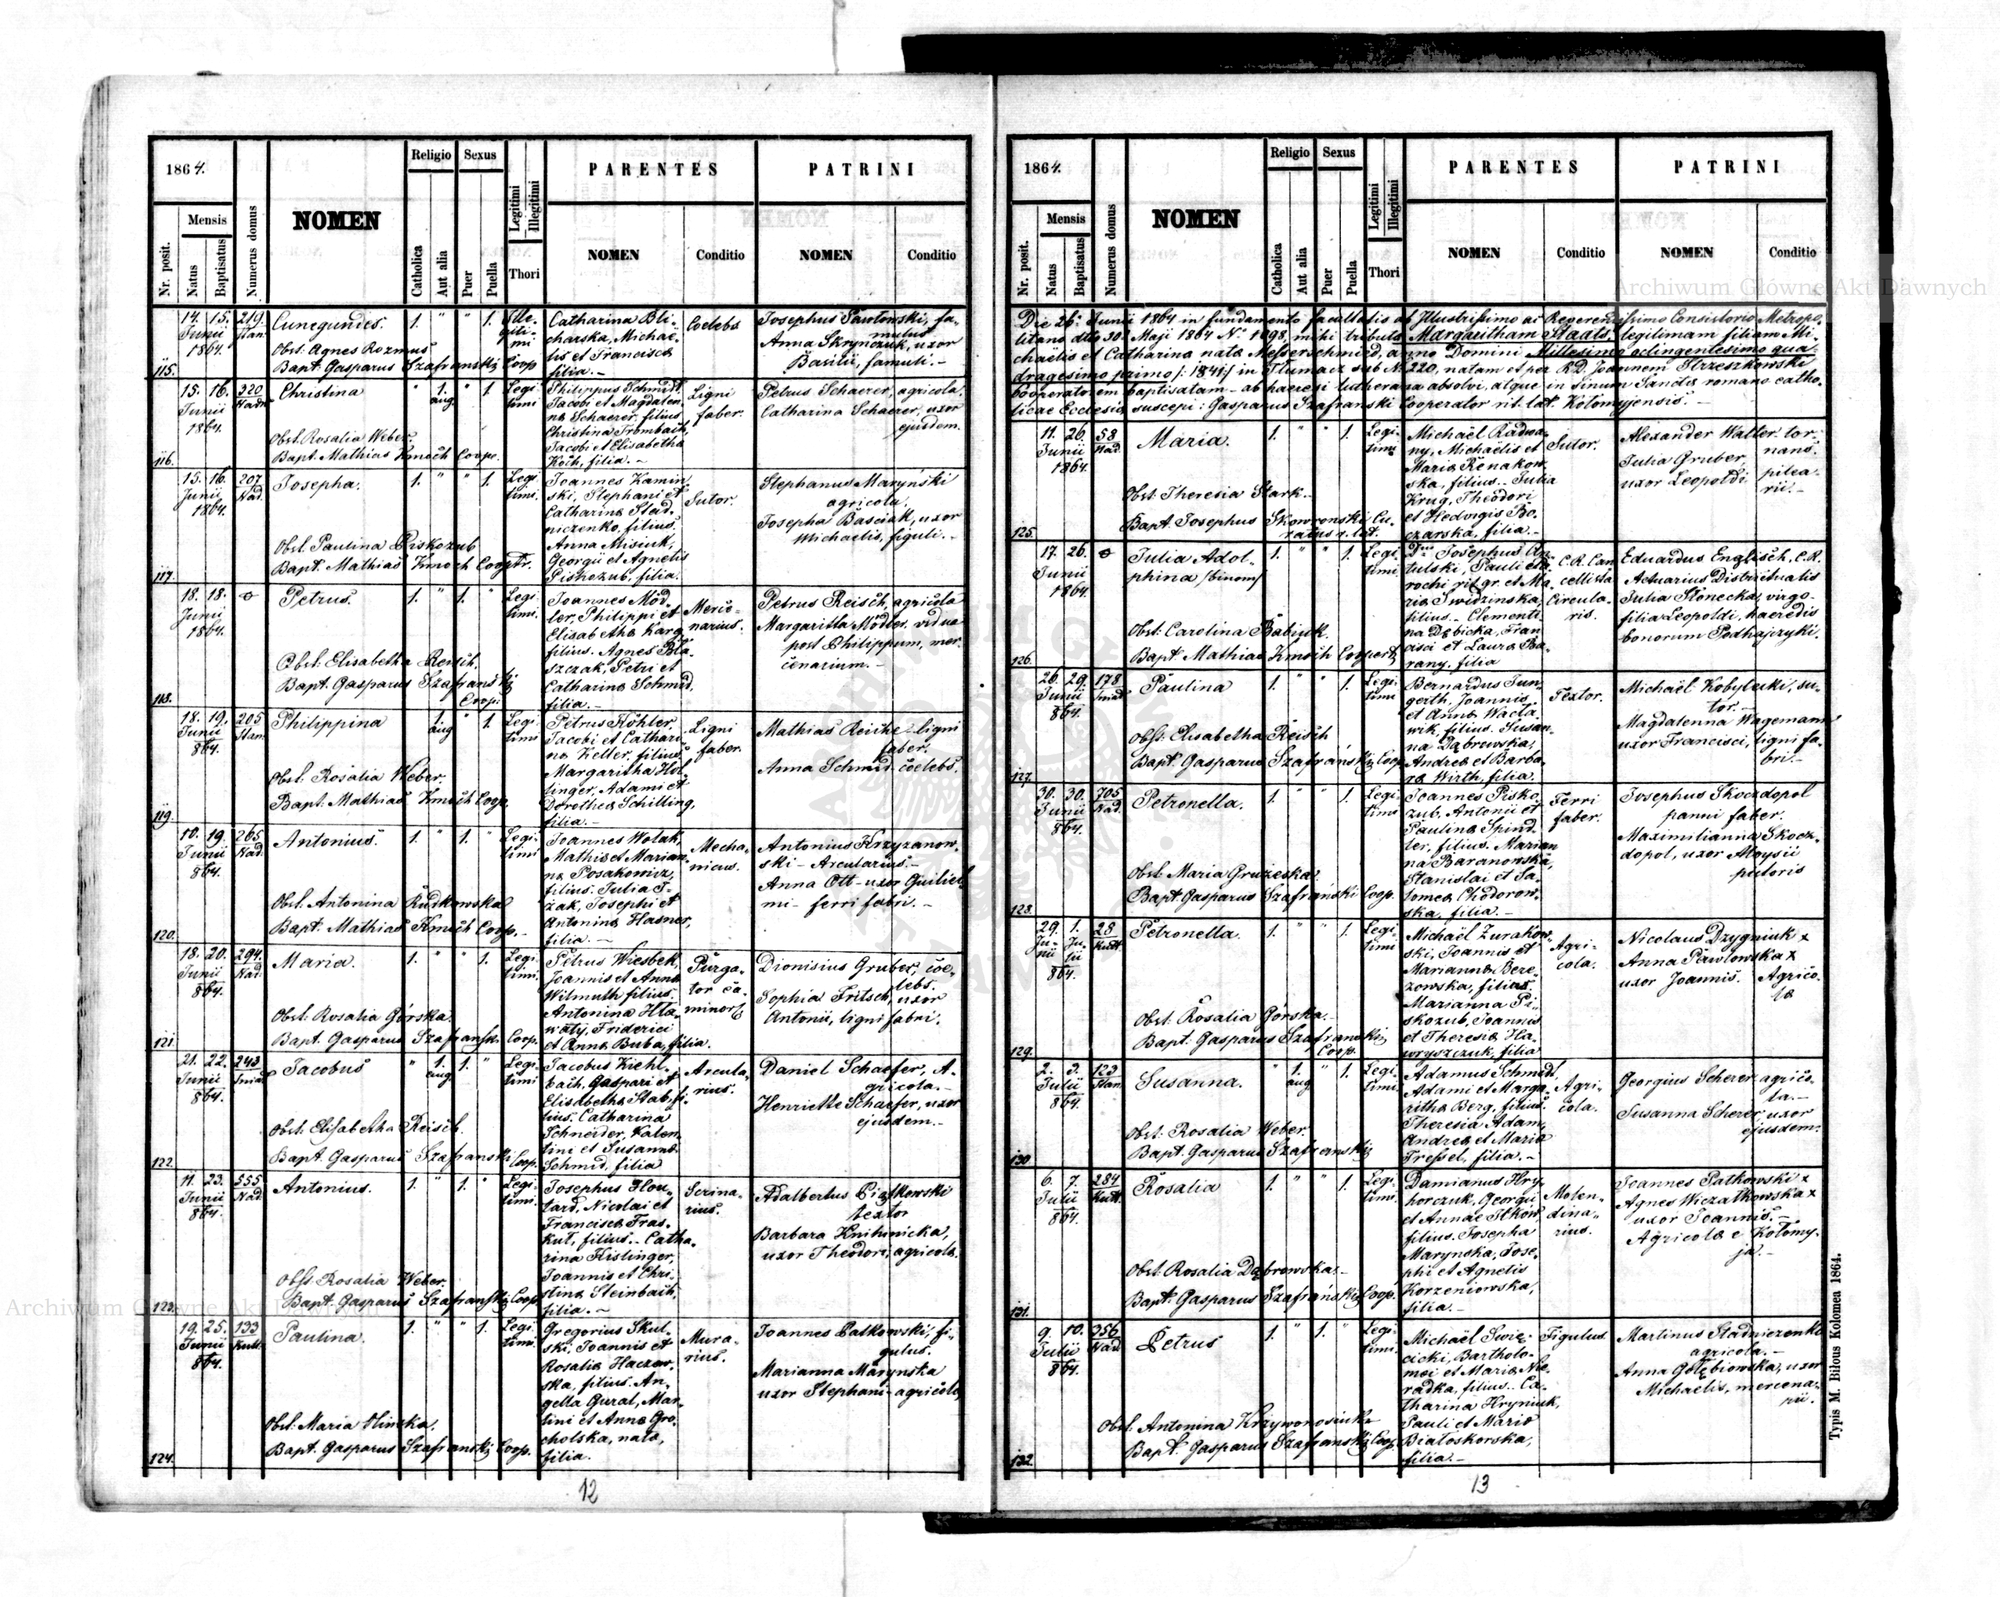 1864.
Nr. posit.
Mensis
Natus
Baptisatus
Numerus domus
NOMEN
Religio
Catholica
Aut alia
Sexus
Puer
Puella
Legitimi
Illegitimi
Thori
PARENTES
NOMEN
Conditio
PATRINI
NOMEN
Conditio
115.
14. 15. 219
Junii
1864.
Cunegundes.
Obst. Agnes Rozmus
Bapt. Gasparus Szafranski Coop
1. " " 1.
Ille-
giti-
mi
Catharina Bli-
charska, Michae-
lis et Francisca
filia.-
Coelebs
Josephus Sawlowski, fa-
mulus
Anna Skrynczuk, uxor
Basilii, famuli.-
116.
15. 16. 220
Junii
1864.
Christina
Obst. Rosalia Weber.
Bapt. Mathias Kmoch Coop.
" 1. " 1
aug
Legi
timi
Philippus Schmidt
Jacobi et Magdalen-
na Schaerer, filius
Christina Trombach,
Jacobi et Elisabetha
Koch, filia.-
Ligni
faber.
Petrus Schaerer, agricola.
Catharina Schaerer, uxor
ejusdem.
117.
15. 16. 207
Junii
1864.
Nad.
Josepha.
Obst. Paulina Piskozub
Bapt. Mathias Kmoch Cooptr.
1. " " 1.
Legi
timi.
Joannes Kamin
ski, Stephani et
Catharina Stad-
niczenko, filius
Anna Misiuk,
Georgii et Agnetis
Piskozub, filia.
Sutor.
Stephanus Maryński
agricola.
Josepha Baściak, uxor
Michaelis, figuli.-
118.
18. 18.
Junii
1864.
Petrus.
Obst. Elisabetha Reisch.
Bapt. Gasparus Szafranski
Coop.
1. " 1. "
Legi
timi.
Joannes Möd-
ler, Philippi et
Elisabetha Karg
filius. Agnes Bła
szczak, Petri et
Catharina Schmid,
filia.-
Merce-
narius.
Petrus Reisch, agricola
Margaritta Mödler, vidua
post Philippum, mer-
cenarium.-
119.
18. 19. 205
Junii
864.
Philippina
Obst. Rosalia Weber.
Bapt. Mathias Kmoch Coop.
1. " 1.
aug
Legi
timi
Petrus Köhler,
Jacobi et Cathari-
na Keller, filius
Margaritha Hol-
linger, Adami et
Dorothea Schilling,
filia.-
Ligni
faber.
Mathias Reiche ligni
faber.
Anna Schmid coelebs.
120.
10. 19. 265
Junii
864.
Nad.
Antonius.
Obst. Antonina Rudkowska
Bapt. Mathias Kmoch Coop.-
1. " 1. "
Legi
timi
Joannes Wolak,
Mathis et Marian-
na Posakowicz,
filius. Julia
Josephi et
Antonina Hasner,
filia.-
Mecha-
nicus.
Antonius Krzyzanow-
ski - Arcularius.-
Anna Ott - uxor Guiliel-
mi - ferri fabri.-
121.
18. 20. 294.
Junii
864.
Nad.
Maria.
Obst. Rosalia Górska.
Bapt. Gasparus Szafranski Coop.
1. " " 1.
Legi
timi.
Petrus Wiesbek,
Joannis et Anna
Wilmuth filius.
Antonina Hła-
waty, Friderici
et Anna Buba, filia.
Purga-
tor ca-
minor.
Dionisius Gruber, coe-
lebs.
Sophia Fritsch, uxor
Antonii, ligni fabri.
122.
21. 22. 243
Junii
864.
Jacobus
Obst. Elisabetha Reisch.
Bapt. Gasparus Szafranski Coop.
" 1. 1. "
aug
Legi
timi
Jacobus Kiehl-
bach, Gaspari et
Elisabetha Stab, fi-
lius. Catharina
Schneider, Valen-
tini et Susanna
Schmid, filia
Arcula-
rius.
Daniel Schaefer, A-
gricola.-
Henriette Schaefer, uxor
ejusdem.-
123.
11. 23. 555
Junii
864.
Nad.
Antonius.
Obst. Rosalia Weber.
Bapt. Gasparus Szafranski Coop.
1. " 1. "
Legi
timi.
Josephus
Nicolai et
Francisca
filius.- Catha-
rina Kislinger,
Joannis et Chri-
stina Steinbach,
filia.-
Scrina-
rius.
Adalbertus Piątkowski
textor
Barbara Knihinicka,
uxor Theodori, agricola.
124.
19. 25. 133
Junii
864.
Paulina.
Obst. Maria Ilinska.
Bapt. Gasparus Szafranski Coop.
1. " " 1.
Legi
timi.
Gregorius Skul-
ski, Joannis et
Rosalia Haczew-
ska, filius. An-
gella Gural, Mar-
tini et Anna Gro-
cholska, nata,
filia.
Mura-
rius.
Joannes Palkowski, fi-
gulus.
Marianna Marynska
uxor Stephani - agricola,
12
1864.
Nr. posit.
Mensis
Natus
Baptisatus
Numerus domus
NOMEN
Religio
Catholica
Aut alia
Sexus
Puer
Puella
Legitimi
Illegitimi
Thori
PARENTES
NOMEN
Conditio
PATRINI
NOMEN
Conditio
Die 26. Junii 1864 in fundamento facultatis ab Illustrissimo ac Reverendissimo Consistorio Metropo-
litano dtto 30. Maji 1864 No 1898, mihi tributa Margaritham Staats, legitimam filiam Mi-
chaelis et Catharina nata Messerschmied, anno Domini Millesimo octingentesimo qua-
dragesimo primo /:1841:/ in Tłumacz sub No 220, natam et per R.D. Joannem Strzeszkowski
Cooperatorem baptisatam - ab haeresi lutherana absolvi, atque in sinum Sancta romano catho-
licae Ecclesia suscepi: Gasparus Szafranski Cooperator rit. lat. Kolomyjensis.-
125.
11. 26. 58
Junii
1864.
Nad.
Maria.
Obst. Theresia Stark.-
Bapt. Josephus Skowronski Cu-
ratus r. lat.
1. " " 1.
Legi-
timi
Michaël Radwa-
ny, Michaëlis et
Maria Renakow
ska, filius.- Julia
Krug, Theodori
et Hedvigis Bo-
czarska, filia.-
Sutor.
Alexander Walter tor-
nano.
Julia Gruber,
uxor Leopoldi pilea-
rii.-
126.
17. 26.
Junii
1864.
Julia Adol-
phina /binom/
Obst. Carolina Babiuk.
Bapt. Mathias Kmoch Coopert.
1. " " 1.
Legi
timi.
Dnus Josephus An-
tulski, Pauli Pa-
rochi rit. gr. et Ma-
ria Swidzinska,
filius.- Clementi-
na Dąbicka, Fran-
cisci et Laura Ba-
rany. filia
C.R. Can
cellista
Circula-
ris.
Eduardus Englisch, C.R.
Actuarius Districtualis
Julia Słonecka, virgo-
filia Leopoldi, haeredis
bonorum Podhajczyki.
127.
26. 29. 178
Junii
864.
Paulina
Obst. Elisabetha Reisch
Bapt. Gasparus Szafranski Coop
1. " " 1.
Legi
timi
Bernardus Jun-
gerth, Joannis
et Anna Wacła-
wik, filius. Susan-
na Dąbrowska,
Andrea et Barba-
ra Wirth, filia.
Textor.
Michaël Kobylecki, su-
tor.-
Magdalenna Wagemann
uxor Francisci, ligni fa-
bri.-
128.
30. 30. 705
Junii
864.
Nad.
Petronella.
Obst. Maria Gruzeska.
Bapt. Gasparus Szafranski Coop.
1. " " 1.
Legi-
timi
Joannes Pisko-
zub, Antonii et
Paulina Spind-
ler, filius. Marian
na Baranowska,
Stanislai et Sa-
lomea Chodorow-
ska, filia.-
Ferri
faber.
Josephus Skoczdopol
panni faber.
Maximilianna Skocz-
dopol, uxor Aloysii
putoris
129.
29. 1. 28
Ju- Ju-
nii lii
864.
Petronella.
Obst. Rosalia Górska.-
Bapt. Gasparus Szafranski
Coop.
1. " " 1.
Legi-
timi
Michaël Zurakow-
ski, Joannis et
Marianna Bere-
zowska, filius.
Marianna Pi-
skozub, Joannis
et Theresia Ha-
wryszczuk, filia
Agri-
cola.
Nicolaus Dzygniuk x
Anna Pawlowska x
uxor Joannis. Agrico-
la
130
2. 3. 123
Julii
864.
Susanna.
Obst. Rosalia Weber.
Bapt. Gasparus Szafranski
" 1. " 1.
aug
Legi-
timi.
Adamus Schmid,
Adami et Marga-
ritha Berg, filius.
Theresia Adam,
Andrea et Maria
Tressel, filia.-
Agri-
cola.
Georgius Scherer agrico-
la.-
Susanna Scherer, uxor
ejusdem.
131.
6. 7. 284
Julii
864.
Rosalia
Obst. Rosalia Dąbrowska.-
Bapt. Gasparus Szafranski Coop.
1. " " 1.
Legi
timi.
Damianus Hry-
horczuk, Georgii
et Annae Ilków,
filius. Josepha
Marynska, Jose-
phi et Agnetis
Korzeniowska,
filia.-
Molen-
dina-
rius.
Joannes Patkowski x
Agnes Wiczatkowska x
uxor Joannis.-
Agricola e Kolomy-
ja.-
132.
9. 10. 356
Julii
864.
Nad.
Petrus
Obst. Antonina Krzywonosiuk
Bapt. Gasparus Szafranski Coop.
1. " 1. "
Legi-
timi.
Michaël Swię-
cicki, Bartholo-
mei et Maria Nie-
radka, filius.- Ca-
tharina Hryniuk,
Pauli et Maria
Białoskorska,
filia.-
Figulus.
Martinus Stadniczenko
agricola.-
Anna Gołębiowska, uxor
Michaelis, mercena-
rii.
Typis M. Bilous Kolomea 1864.
13
Archiwum Główne Akt Dawnych
Archiwum Główne Akt Dawnych